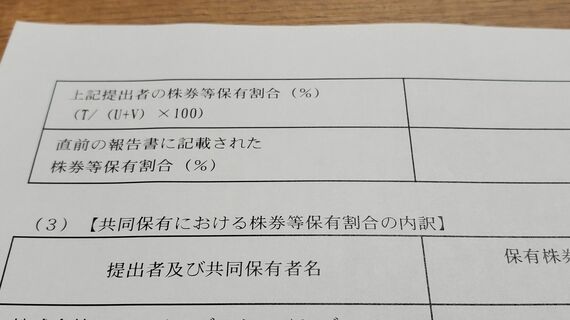 上記提出者の株券等保有割合（％）
（T/（U+V）×100）
直前の報告書に記載された
株券等保有割合（％）
（3）【共同保有における株券等保有割合の内訳】
保有株券
提出者及び共同保有者名